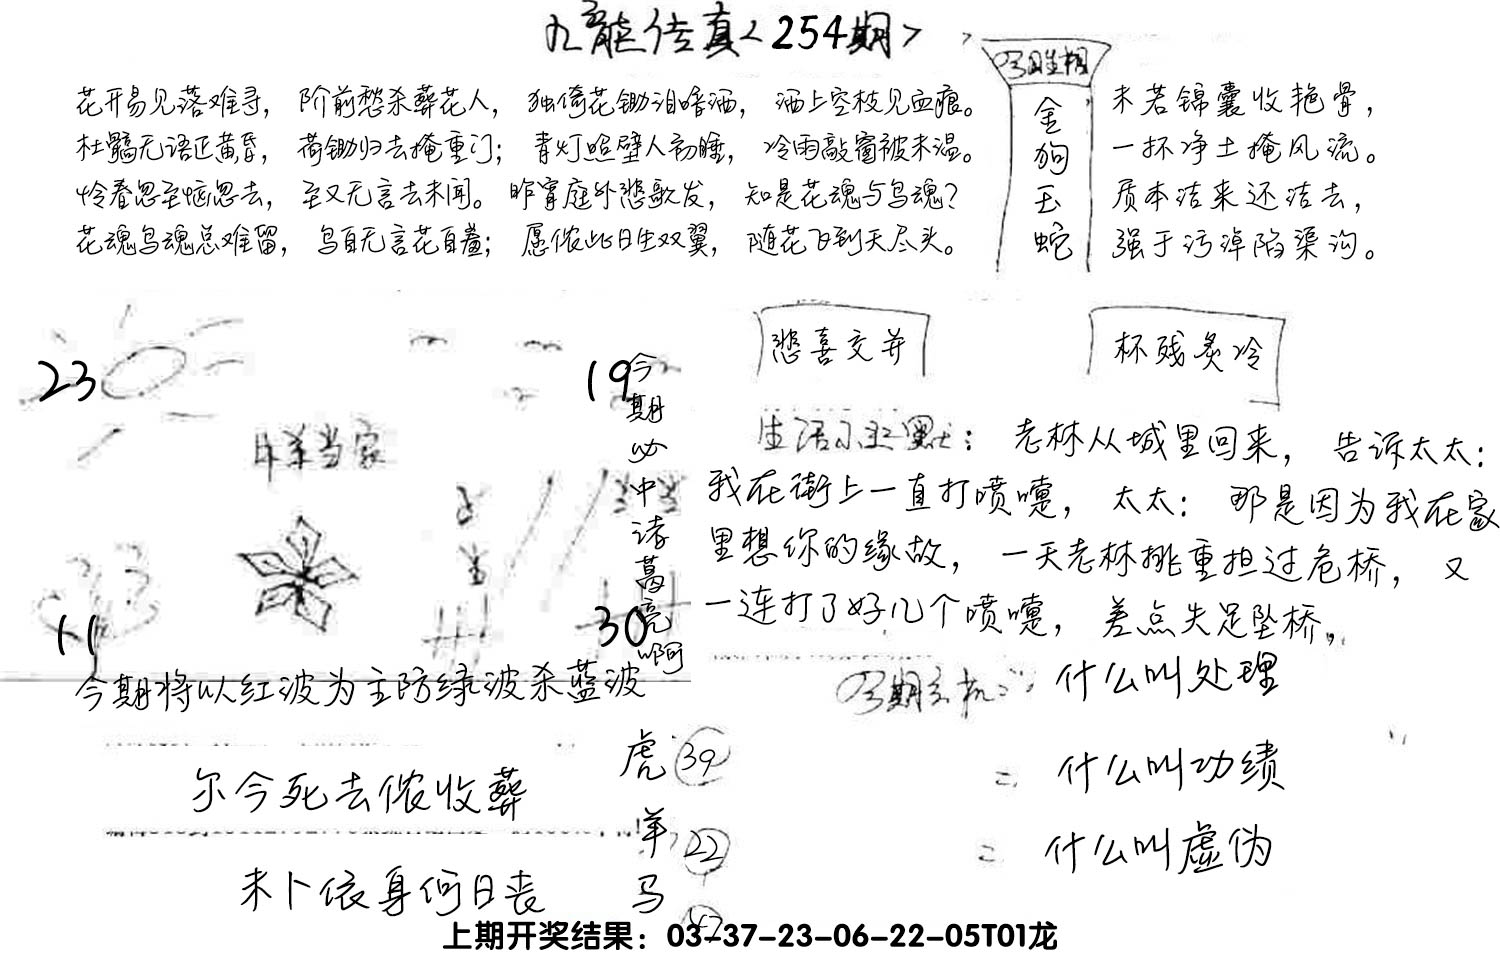 九龙传真<254期>
花开易见落难寻， 阶前愁杀葬花人， 独倚花锄泪暗洒， 洒上空枝见血痕。
杜鹃无语正黄昏， 荷锄归去掩重门； 青灯照壁人初睡， 冷雨敲窗被未温。
怜春忽至恼忽去， 至又无言去未闻。 昨宵庭外悲歌发， 知是花魂与鸟魂？
花魂鸟魂总难留， 鸟自无言花自羞； 愿侬此日生双翼， 随花飞到天尽头。
金
狗
玉
蛇
未若锦囊收艳骨，
一抔净土掩风流。
质本洁来还洁去，
强于污淖陷渠沟。
悲喜交并
杯残炙冷
23
19
今期必中诸葛亮啊
当家
11
30
今期将以红波为主防绿波杀蓝波
生活小幽默： 老林从城里回来， 告诉太太：
我在街上一直打喷嚏， 太太： 那是因为我在家
里想你的缘故， 一天老林挑重担过危桥， 又
一连打了好几个喷嚏， 差点失足坠桥，
今期玄机： 什么叫处理
什么叫功绩
什么叫虚伪
尔今死去侬收葬
未卜侬身何日丧
虎 39
羊 22
马
上期开奖结果：03-37-23-06-22-05T01龙